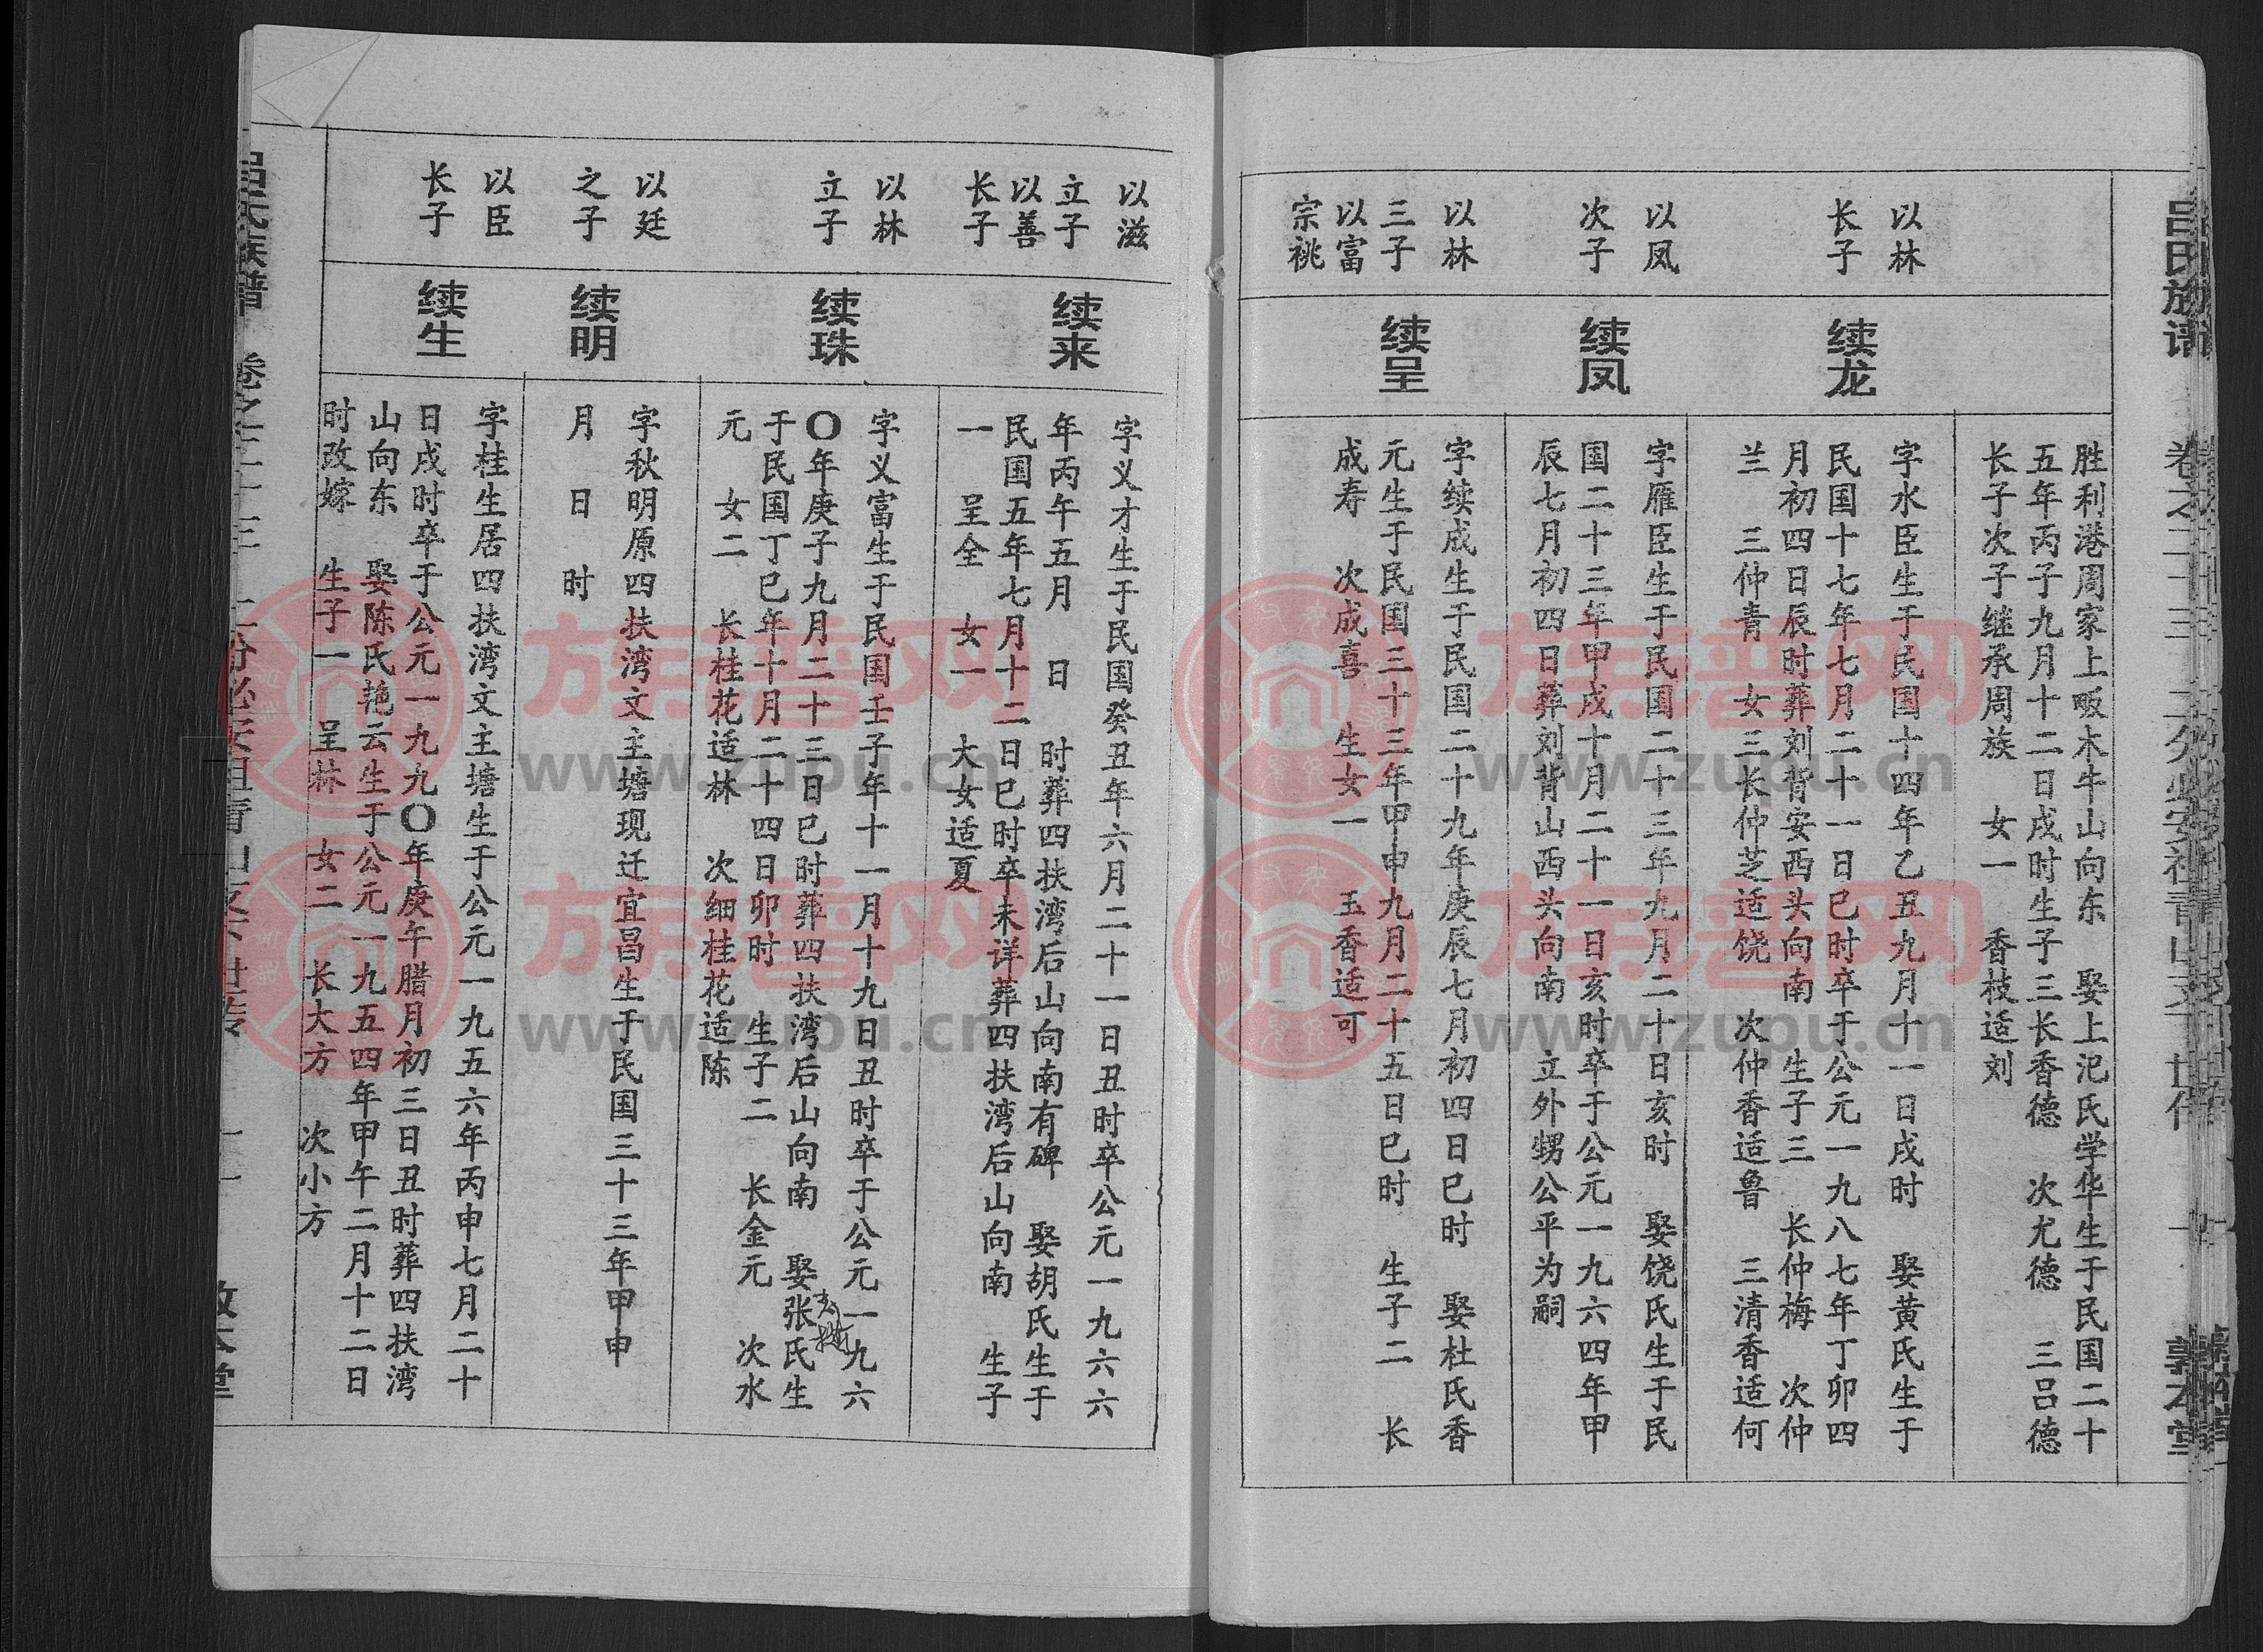 吕氏族谱
卷之二十三
敦本堂
胜利港周家上畈木牛山向东 娶上汜氏学华生于民国二十
五年丙子九月十二日戌时生子三长香德 次尤德 三吕德
长子次子继承周族 女一 香枝适刘
以林
长子
续龙
字水臣生于民国十四年乙丑九月十一日戌时 娶黄氏生于
民国十七年七月二十一日巳时卒于公元一九八七年丁卯四
月初四日辰时葬刘背安西头向南 生子三 长仲梅 次仲
兰 三仲青 女三长仲芝适饶 次仲香适鲁 三清香适何
以凤
次子
续凤
字雁臣生于民国二十三年九月二十日亥时 娶饶氏生于民
国二十三年甲戌十月二十一日亥时卒于公元一九六四年甲
辰七月初四日葬刘背山西头向南 立外甥公平为嗣
以林
三子
以富
宗祧
续呈
字续成生于民国二十九年庚辰七月初四日巳时 娶杜氏香
元生于民国三十三年甲申九月二十五日巳时 生子二 长
成寿 次成喜 生女一 玉香适可
以滋
立子
以善
长子
续来
字义才生于民国癸丑年六月二十一日丑时卒公元一九六六
年丙午五月 日 时葬四扶湾后山向南有碑 娶胡氏生于
民国五年七月十二日巳时卒未详葬四扶湾后山向南 生子
一 呈全 女一 大女适夏
以林
立子
续珠
字义富生于民国壬子年十一月十九日丑时卒于公元一九六
〇年庚子九月二十三日巳时葬四扶湾后山向南 娶张氏生
于民国丁巳年十月二十四日卯时 生子二 长金元 次水
元 女二 长桂花适林 次细桂花适陈
以廷
之子
续明
字秋明原四扶湾文主塘现迁宜昌生于民国三十三年甲申
月 日 时
以臣
长子
续生
字桂生居四扶湾文主塘生于公元一九五六年丙申七月二十
日戌时卒于公元一九九〇年庚午腊月初三日丑时葬四扶湾
山向东 娶陈氏艳云生于公元一九五四年甲午二月十二日
时改嫁 生子一 呈林 女二 长大方 次小方
吕氏族谱
族谱网
www.zupu.cn
族谱网
www.zupu.cn
族谱网
www.zupu.cn
族谱网
www.zupu.cn